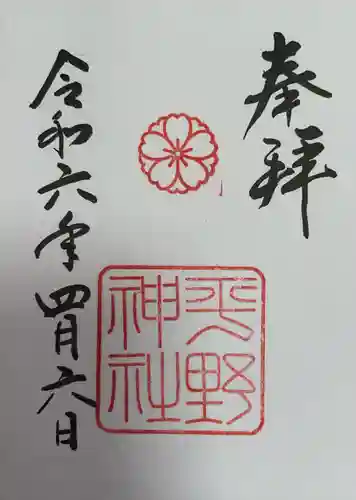 奉拝
平野
神社
令和六年四月六日